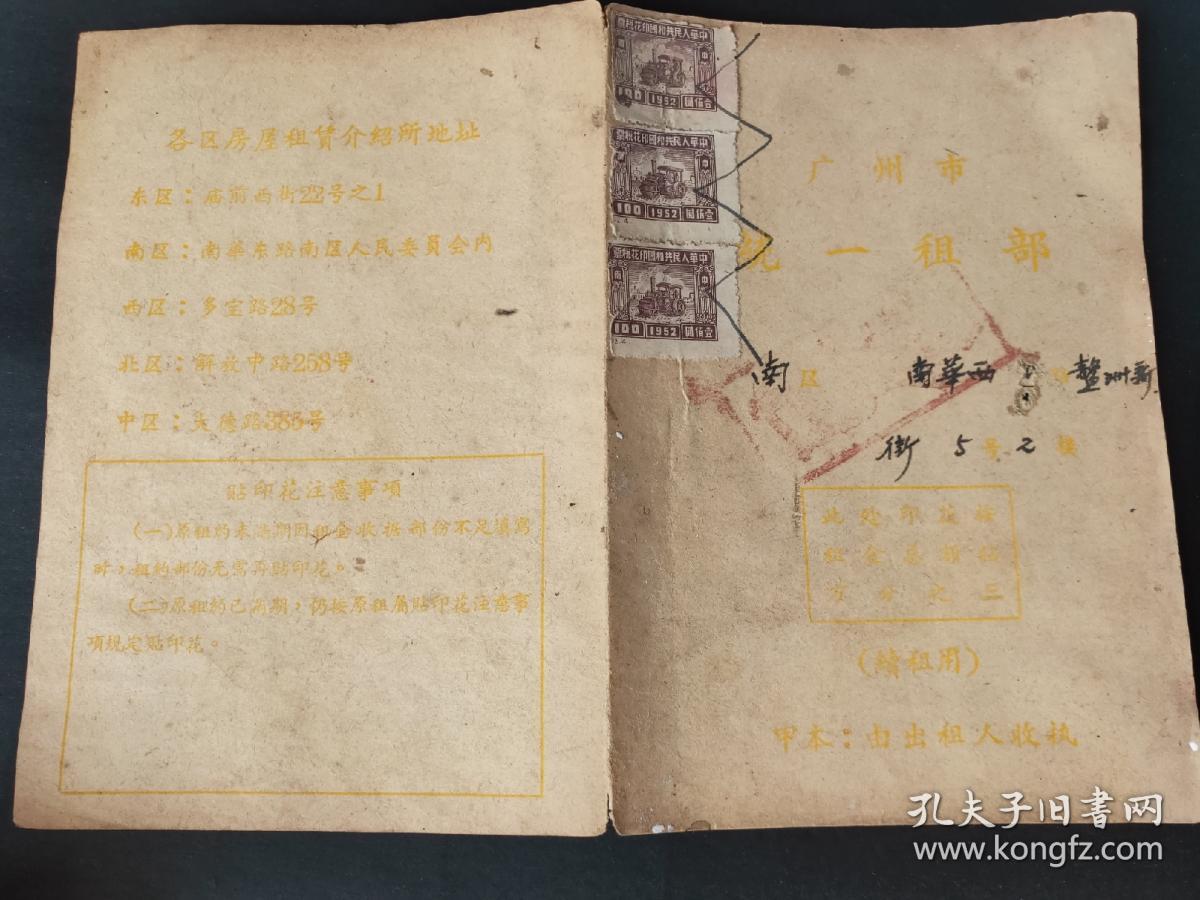 各区房屋租賃介紹所地址
东区：庙前西街22号之1
南区：南華东路南区人民委員会内
西区：多宝路28号
北区：解放中路258号
中区：大德路385号
貼印花注意事項
（一）原租約未滿期因租金收据部份不足填寫
时，租約部份无需再貼印花。
（二）原租約已滿期，仍按原租簿貼印花注意事
項規定貼印花。
票税花印國和共民人華中
100 1952 圓佰壹
票税花印國和共民人華中
100 1952 圓佰壹
票税花印國和共民人華中
100 1952 圓佰壹
广州市
統一租部
南区 南華西 鰲洲新
街 5号2楼
此处印花按
租金总額貼
万分之三
（續租用）
甲本：由出租人收执
孔夫子旧书网
www.kongfz.com